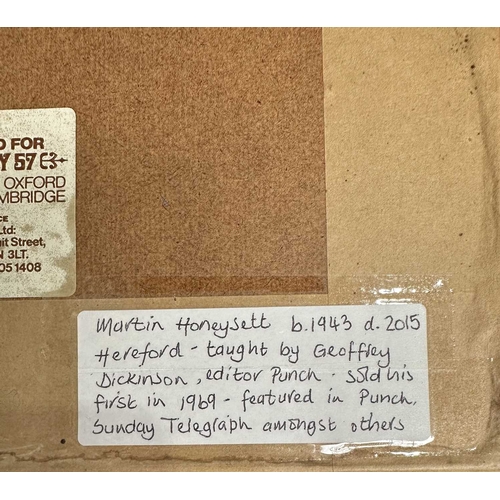 D FOR
Y 57 E3
OXFORD
MBRIDGE
CE
Ltd:
uit Street,
N 3LT.
05 1408
Martin Honeysett b.1943 d.2015
Hereford - taught by Geoffrey
Dickinson, editor Punch - sold his
first in 1969 - featured in Punch,
Sunday Telegraph amongst others